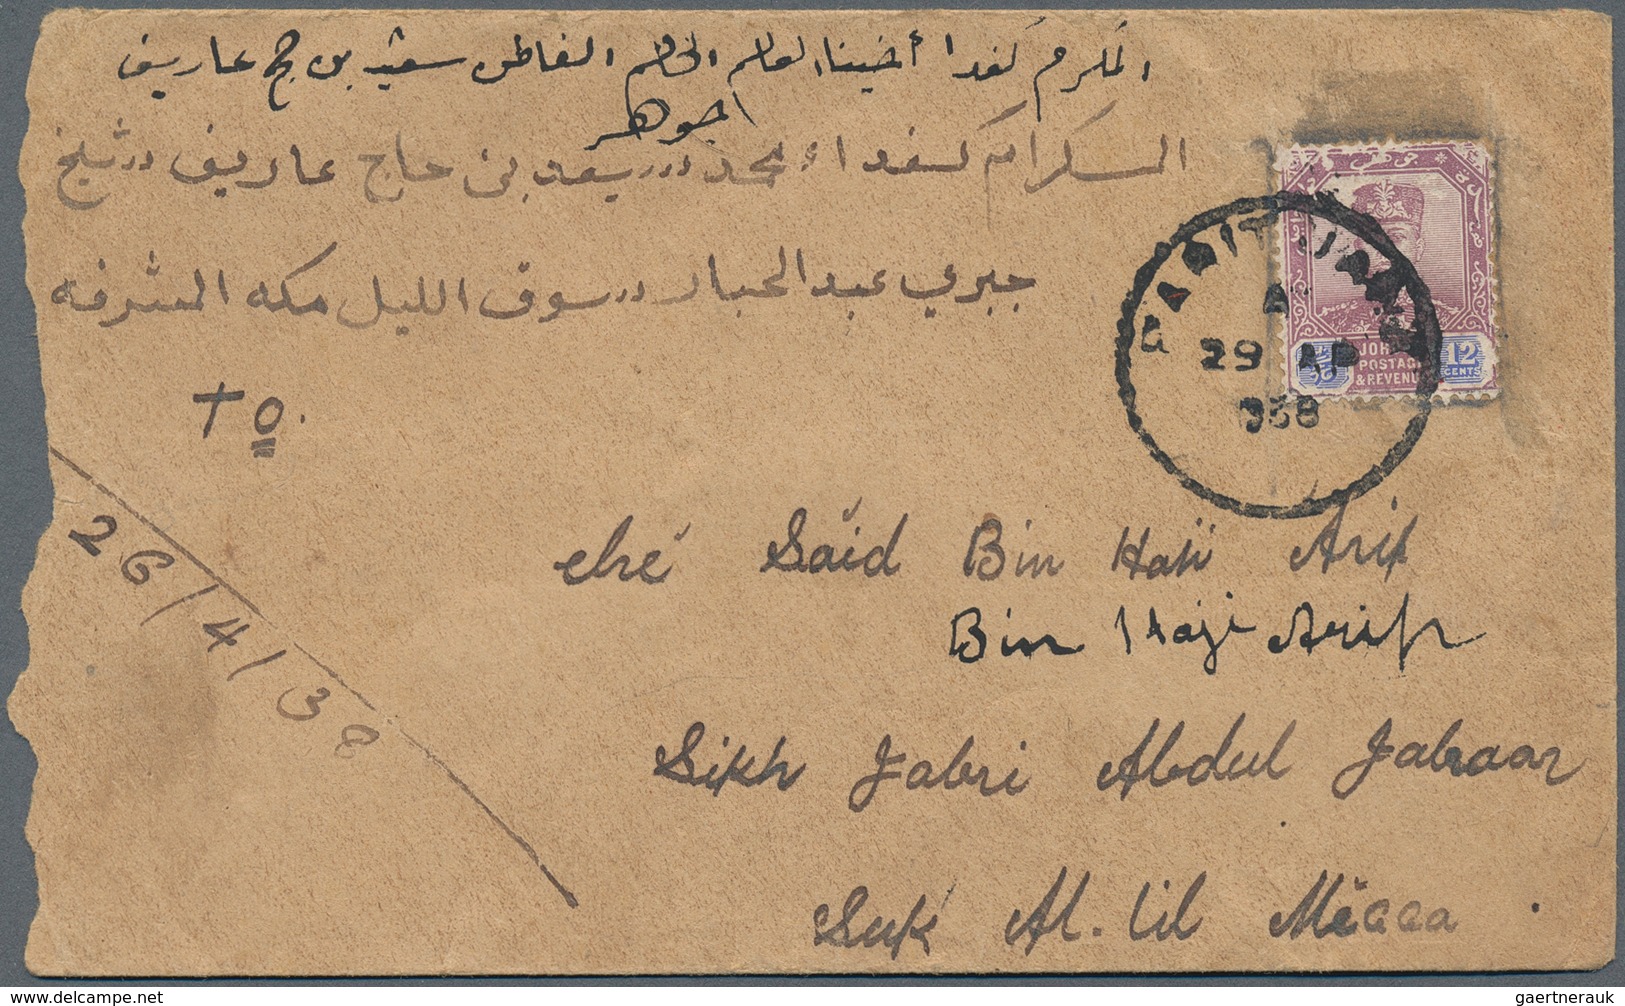 المكرم كفدا أخينا العالم الفاضل سعيد بن حج عاريف
جوهر
المكرام كفداء محمد سعيد بن حاج عاريف شيخ
جبري عبد الجبار سوق الليل مكه المشرفه
PARIT JAWA
A
29 AP
938
JOHORE
POSTAGE
& REVENUE
12
CENTS
To.
26/4/38
ché Säid Bin Haji Arif
Bin Haji Ariff
Sikh Jabri Abdul Jabaar
Suk Al. lil Mecca.
www.delcampe.net
gaertnerauk